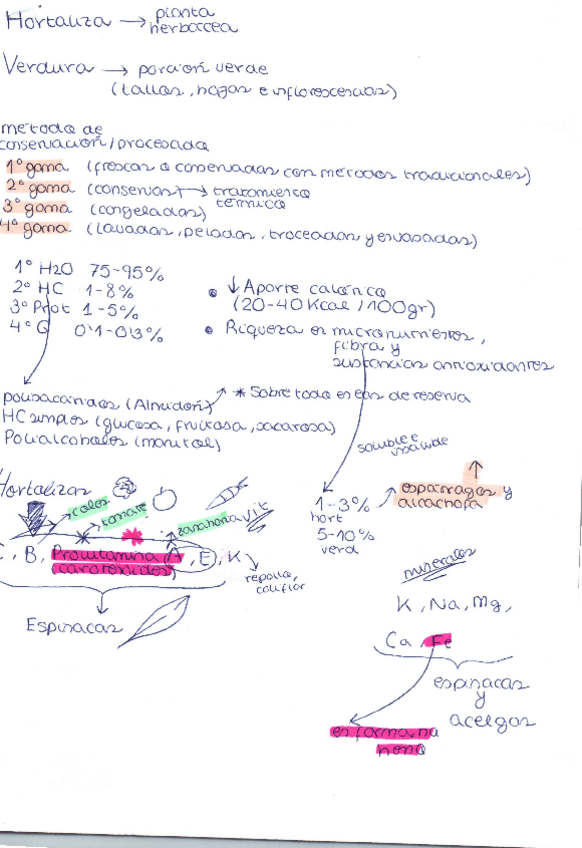 Hortaliza → planta
herbacea
Verdura → porción verde
(tallos, hojas e inflorescencias)
método de
conservación/procesado
1º gama (frescas o conservadas con métodos tradicionales)
2º gama (conservas) → tratamiento
térmico
3º gama (congeladas)
4º gama (lavadas, peladas, troceadas, y envasadas)
1º H2O 75-95%
2º HC 1-8%
3º Prot 1-5%
4º G 0'1-0'3%
• ↓ Aporte calórico
(20-40 Kcal / 100gr)
• Riqueza en micronutrientes,
fibra y
sustancias antioxidantes
polisacáridos (Almidón) ↗ * Sobre todo es de reserva
HC simples (glucosa, fructosa, sacarosa)
Polialcoholes (manitol)
soluble e
insoluble
1-3%
hort
5-10%
verd
↗ espárragos y
alcachofa
Hortalizas
coles
tomate
zanahoria
Vit
C, B, Provitamina A, E, K
(carotenoides)
repollo,
coliflor
Espinacas
minerales
K, Na, Mg,
Ca, Fe
espinacas
y
acelgas
en forma no
hemo